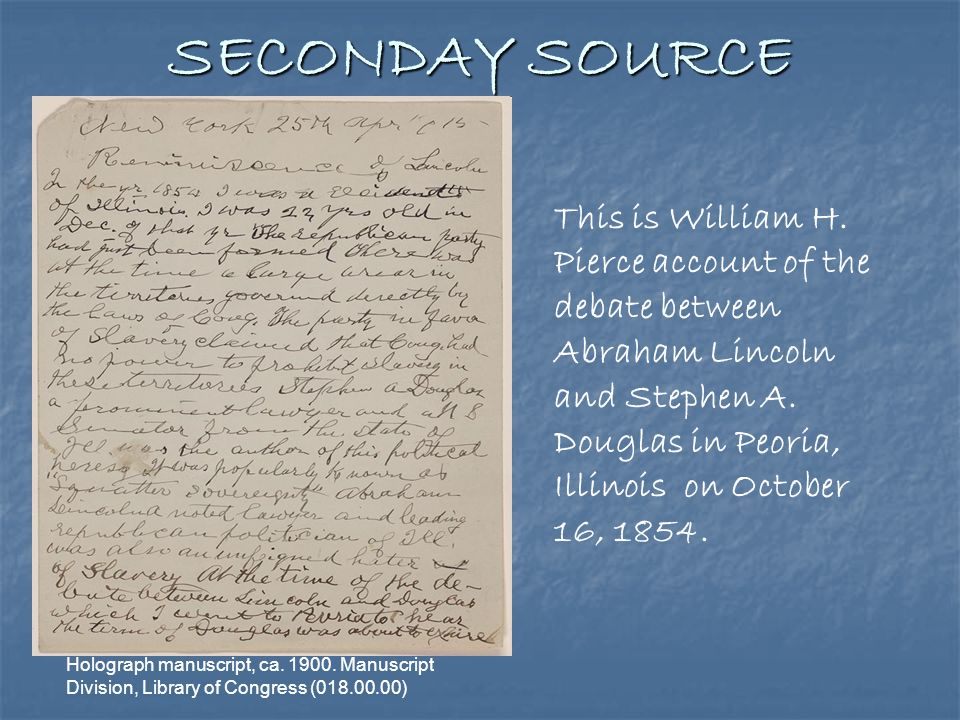 SECONDAY SOURCE
New York 25th Apr
Reminiscence of Lincoln
In the yr 1854 I was a
of Illinois. I was 12 yrs old in
Dec. of that yr The republican party
had just been formed there was
at the time a large area in
the territories governd directly by
the laws of Cong. The party in favor
of Slavery claimed that Cong. had
no power to prohibit slavery in
these territories Stephen a Douglas
a prominent lawyer and a U S
Senator from the state of
Ill. was the author of this political
heresy It was popularly known as
"Squatter Sovereignty" Abraham
Lincoln a noted lawyer and leading
republican politician of Ill.
was also an unfeigned hater
of Slavery At the time of the de-
bate between Lincoln and Douglas
which I went to Peoria to hear
the term of Douglas was about to expire
This is William H.
Pierce account of the
debate between
Abraham Lincoln
and Stephen A.
Douglas in Peoria,
Illinois on October
16, 1854.
Holograph manuscript, ca. 1900. Manuscript
Division, Library of Congress (018.00.00)